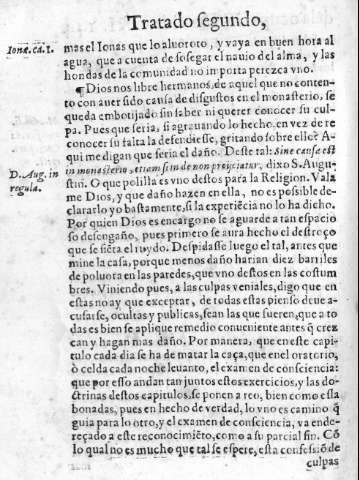 Tratado segundo,
Ionæ. ca. I.
mas el Ionas que lo aluoroto, y vaya en buen hora al
agua, que a cuenta de sosegar el nauio del alma, y las
hondas de la comunidad no importa perezca vno.
¶ Dios nos libre hermanos, de aquel que no conten-
to con auer sido causa de disgustos en el monasterio, se
queda embotijado sin saber ni querer conocer su cul
pa. Pues que seria, si agrauando lo hecho, en vez de re
conocer su falta la defendiesse, gritando sobre ello? A
qui me digan que seria el daño. Deste tal: Sine causa est
D. Aug. in
regula.
in monasterio, etiam si inde non proijciatur, dixo S. Augu-
stin. O que polilla es vno destos para la Religion. Vala
me Dios, y que daño hazen en ella, no es possible de-
clararlo yo bastamente, si la experiẽcia no lo ha dicho.
Por quien Dios es encargo no se aguarde a tan espacio
so desengaño, pues primero se aura hecho el destroço
que se siẽta el ruydo. Despidasse luego el tal, antes que
mine la casa, porque menos daño harian diez barriles
de poluora en las paredes, que vno destos en las costum
bres. Viniendo pues, a las culpas veniales, digo que en
estas no ay que exceptar, de todas estas pienso deue a-
cusarse, ocultas y publicas, sean las que fueren, que a to
das es bien se aplique remedio conueniente antes q̃ crez
can y hagan mas daño. Por manera, que en este capi-
tulo cada dia se ha de matar la caça, que en el oratorio,
ò celda cada noche leuanto, el examen de consciencia:
que por esso andan tan juntos estos exercicios, y las do-
ctrinas destos capitulos se ponen a reo, bien como esla
bonadas, pues en hecho de verdad, lo vno es camino q̃
guia para lo otro, y el examen de consciencia, va ende-
reçado a este reconocimiẽto, como a su parcial fin. Cõ
lo qual no es mucho que tal se espere, esta confessiõ de
culpas